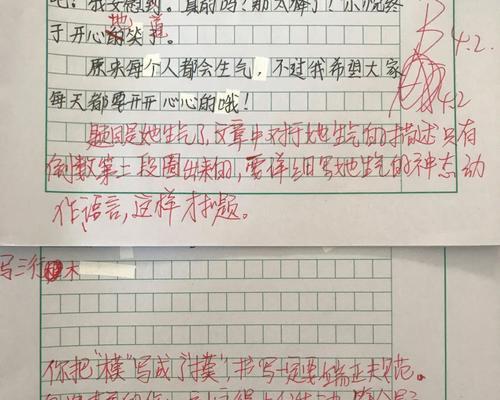 真的吗?那太棒了!小悦终
地着
于开心的笑了。
原来每个人都会生气,不过我希望大家
每天都要开开心心的哦!
B
4.2.
4.2
题目是她生气了,文章中对于她生气的描述只有
倒数第二段圈出来的,要详细写她生气的神态动
作语言,这样才扣题。
写三行
木
你把“模”写成了“摸”,书写一定要端正规范。